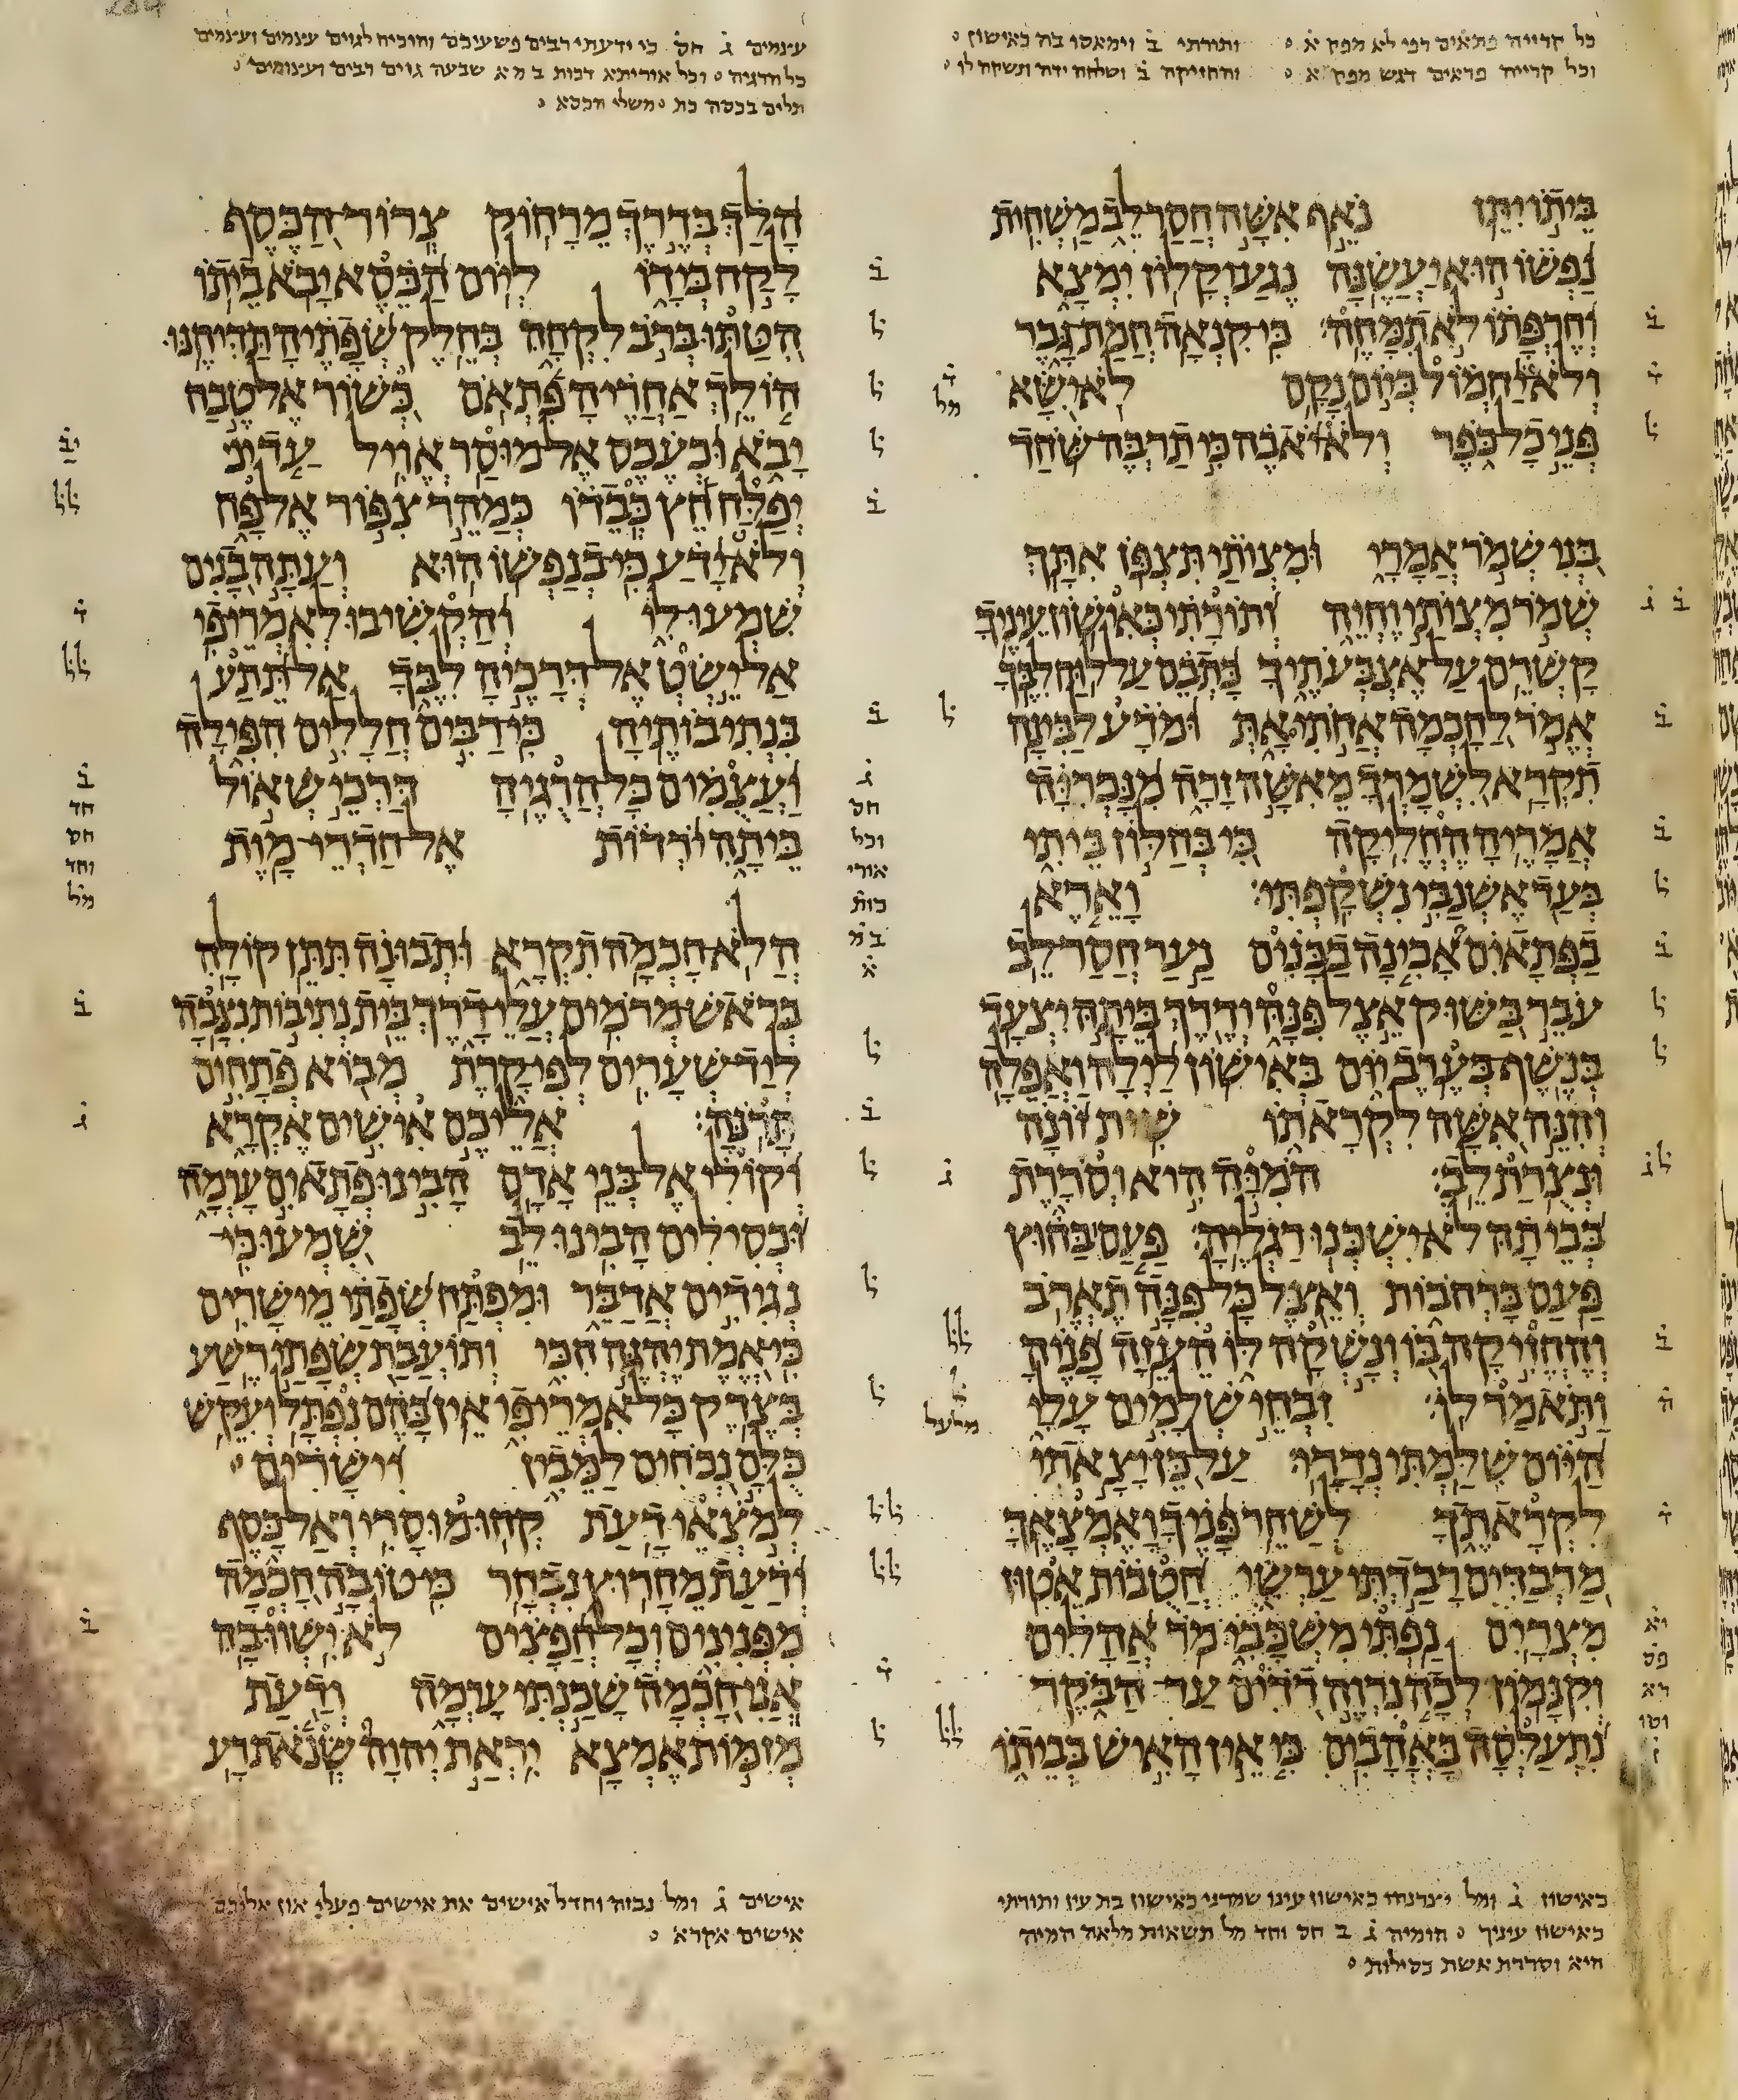 כל קרייה פתאים רפי לא מפק א ותורתי ב וימאסו בה כאישון
וכל קרייה פתאים דגש מפק א והחזיקה ב ושלחה ידה ונשקה לו
ביתו יתן נאף אשה חסר לב משחית
נפשו הוא יעשנה נגע וקלון ימצא
וחרפתו לא תמחה כי קנאה חמת גבר
ולא יחמול ביום נקם לא ישא
פני כל כפר ולא יאבה כי תרבה שחד
בני שמר אמרי ומצותי תצפן אתך
שמר מצותי וחיה ותורתי כאישון עיניך
קשרם על אצבעתיך כתבם על לוח לבך
אמר לחכמה אחתי את ומדע לבינה
תקרא לשמרך מאשה זרה מנכריה
אמריה החליקה כי בחלון ביתי
בעד אשנבי נשקפתי וארא
בפתאים אבינה בבנים נער חסר לב
עבר בשוק אצל פנה ודרך ביתה יצעד
בנשף בערב יום באישון לילה ואפלה
והנה אשה לקראתו שית זונה
ונצרת לב המיה היא וסררת
בביתה לא ישכנו רגליה פעם בחוץ
פעם ברחבות ואצל כל פנה תארב
והחזיקה בו ונשקה לו העזה פניה
ותאמר לו זבחי שלמים עלי
היום שלמתי נדרי על כן יצאתי
לקראתך לשחר פניך ואמצאך
מרבדים רבדתי ערשי חטבות אטון
מצרים נפתי משכבי מר אהלים
וקנמון לכה נרוה דדים עד הבקר
נתעלסה באהבים כי אין האיש בביתו
כאישון ג ומל יצרנהו כאישון עינו שמרני כאישון בת עין ותורתי
כאישון עיניך המיה ג ב חס וחד מל תשאות מלאה המיה
היא וסררת אשת כסילות
עצמים ג חס כי ידעתי רבים פשעיכם והוכיח לגוים עצמים ועצמים
כל הרגיה וכל אוריתא דכות ב מ א שבעה גוים רבים ועצומים
תלים בכסה כת משלי הכסא
הלך בדרך מרחוק צרור הכסף
לקח בידו ליום הכסא יבא ביתו
הטתו ברב לקחה בחלק שפתיה תדיחנו
הולך אחריה פתאם כשור אל טבח
יבא וכעכס אל מוסר אויל עד
יפלח חץ כבדו כמהר צפור אל פח
ולא ידע כי בנפשו הוא ועתה בנים
שמעו לי והקשיבו לאמרי פי
אל ישט אל דרכיה לבך אל תתע
בנתיבותיה כי רבים חללים הפילה
ועצמים כל הרגיה דרכי שאול
ביתה ירדות אל חדרי מות
הלא חכמה תקרא ותבונה תתן קולה
בראש מרמים עלי דרך בית נתיבות נצבה
ליד שערים לפי קרת מבוא פתחים
תרנה אליכם אישים אקרא
וקולי אל בני אדם הבינו פתאים ערמה
וכסילים הבינו לב שמעו כי
נגידים אדבר ומפתח שפתי מישרים
כי אמת יהגה חכי ותועבת שפתי רשע
בצדק כל אמרי פי אין בהם נפתל ועקש
כלם נכחים למבין וישרים
למצאי דעת קחו מוסרי ואל כסף
ודעת מחרוץ נבחר כי טובה חכמה
מפנינים וכל חפצים לא ישוו בה
אני חכמה שכנתי ערמה ודעת
מזמות אמצא יראת יהוה שנאת רע
אישים ג ומל נבזה וחדל אישים את אישים פעלי און אליכם
אישים אקרא